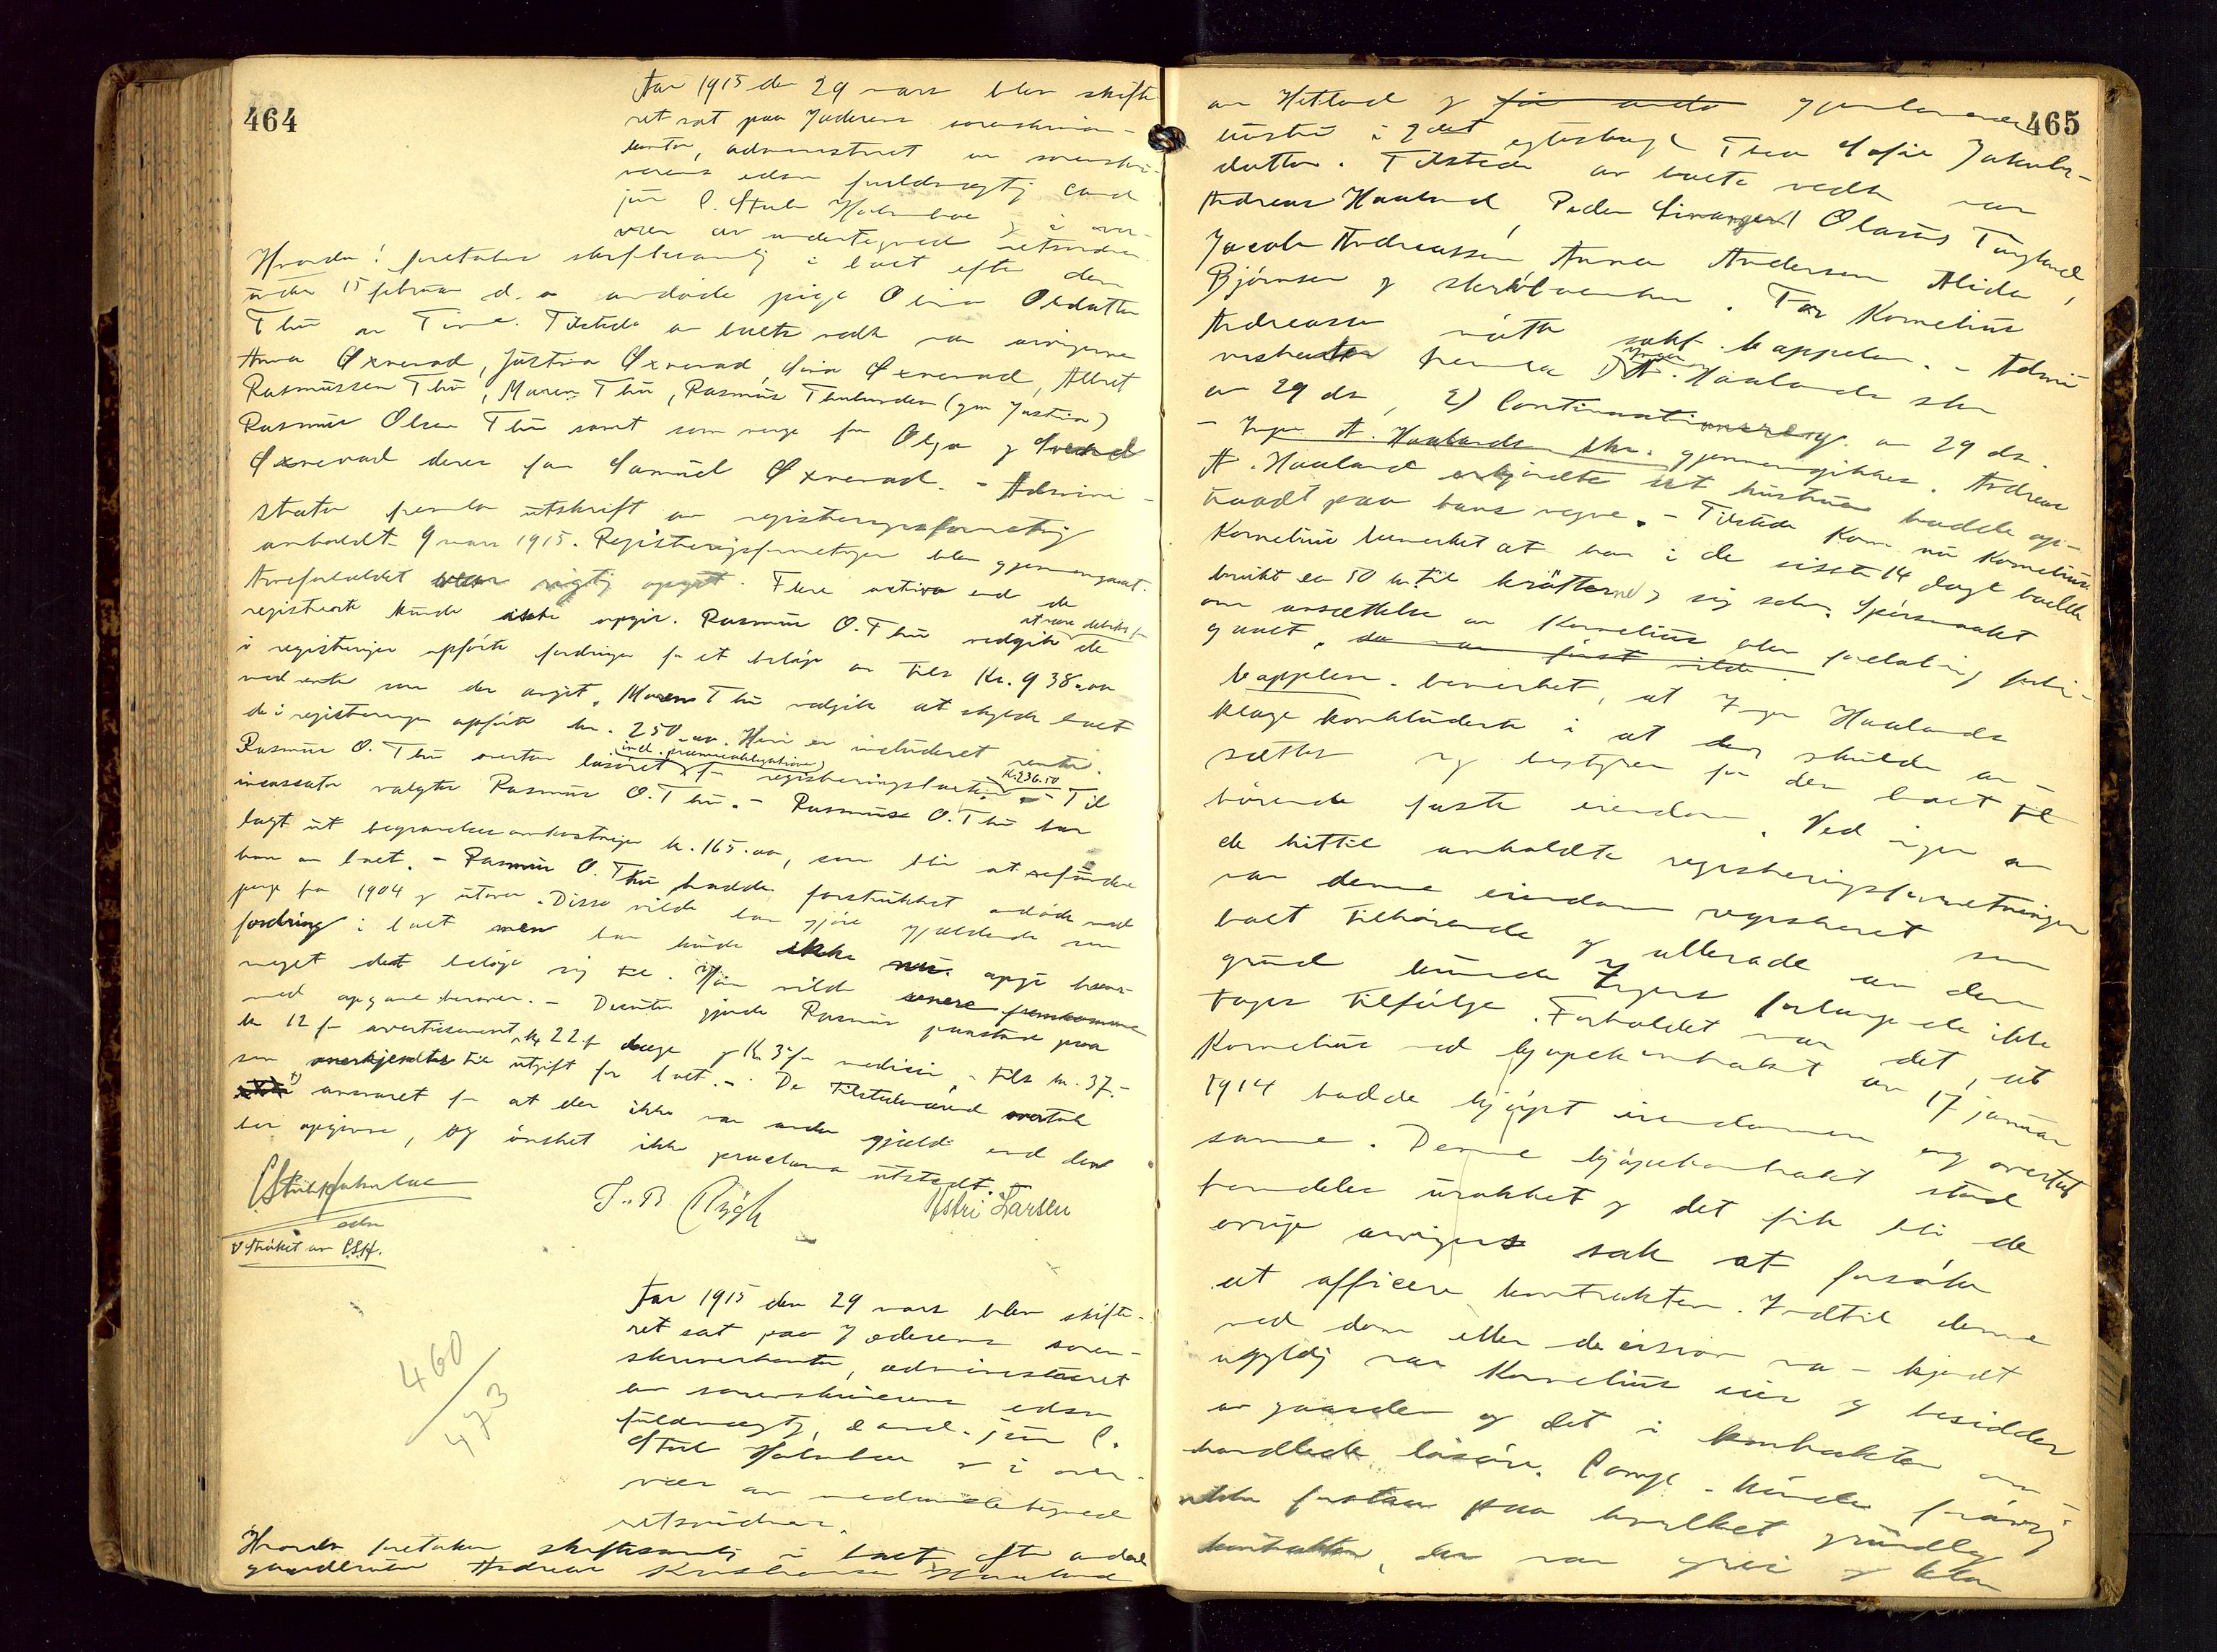 464
Aar 1915 den 29 mars blev skifte-
ret sat paa Jæderens sorenskriver-
kontor, administreret av sorenskri-
verens edsv. fuldmægtig cand.
jur. C. Stub Holmboe og i over-
vær av undertegnede retsvidner.
Hvorda: foretages skiftesamling i boet efter den
under 15 februar d. a. avdøde pige Olina Olsdatter
Thu av Time. Tilstede av boets vedk. var arvingerne
Anna Øxnevad, Justina Øxnevad, Sina Øxnevad, Albret
Rasmussen Thu, Maren Thu, Rasmus Thulunden (gm Justina)
Rasmus Olsen Thu samt som verge for Olga og Svend
Øxnevad deres far Samuel Øxnevad. - Admini-
strator fremla utskrift av registreringsforretning
avholdt 9 mars 1915. Registreringsforretningen blev gjennemgaat.
Arveforholdet var rigtig opgit. Flere activa end de
registrerte kunde ikke opgis. Rasmus O. Thu vedgik at være debitor for de
i registreringen opførte fordringer for et beløp av tils. Kr. 938.00
med renter som der angit. Maren Thu vedgik at skylde boet
de i registreringen opførte kr. 250.00. Heri er includeret renter.
Rasmus O. Thu overtar løsøret (incl. præmieobligationer) for registreringstaksten Kr. 236.50 - Til
incassator valgtes Rasmus O. Thu. - Rasmus O. Thu har
lagt ut begravelsesomkostninger kr. 165.00, som blir at refundere
ham av boet. - Rasmus O. Thu hadde forstrukket avdøde med
penge fra 1904 og utover. Disse vilde han gjøre gjældende som
fordring i boet men han kunde ikke nu opgi hvor
meget det beløp sig til. Han vilde senere fremkomme
med opgave herover. - Desuten gjorde Rasmus paastand paa
kr 12 for avertissement, kr 22 for læge og Kr. 3 for medicin, - tils kr. 37.-
som anerkjendtes til utgift for boet. - De tilstedeværende overtok
ansvaret for at der ikke var anden gjæld end den
her opgivne, og ønsket ikke proclama utstedt. -
C Stub Holmboe
edsv
S. B. Rygh
Astri Larsen
v Strøket av C.S.H.
460
473
Aar 1915 den 29 mars blev skifte-
ret sat paa Jæderens soren-
skriverkontor, administreret
av sorenskriverens edsv.
fuldmægtig, cand. jur. C.
Stub Holmboe og i over-
vær av nedenundertegnede
retsvidner.
Hvorda foretages skiftesamling i boet efter avdøde
gaardbruker Andreas Kristiansen Haaland
465
av Hetland og før avdøde gjenlevende
hustru i 2det egteskap Thea Sofie Jakobs-
datter. Tilstede av boets vedk. var
Andreas Haaland, Peder Sivangen, Olaus Tungland,
Jacob Andreassen, Anna Andersen, Alida
Bjørnsen og skrølbænken. For Kornelius
Andreassen møtte sakf. Cappelen. - Admi-
nistrator fremla 1) Inger A. Haalands skr.
av 29 ds, 2) Continuationsreg. av 29 ds.
- Inger A. Haalands skr. gjennemgikkes. Andreas
A. Haaland erkjendte at hustruen hadde op-
traadt paa hans vegne. - Tilstede kom nu Kornelius.
Kornelius bemerket at han i de sisste 14 dage hadde
brukt en 50 kr. til kreaturene og sig selv. Spørsmaalet
om ansættelse av Kornelius blev foreløbig forbi-
gaaet.
Cappelen. bemerket, at Inger Haalands
klage konkluderte i at der skulde an-
sættes ny bestyrer for den boet til
hørende faste eiendom. Ved ingen av
de hittil avholdte registreringsforretninger
var denne eiendom registreret som
boet tilhørende og allerede av den
grund kunde Ingers forlangende ikke
tages tilfølge. Forholdet var det, at
Kornelius ved kjøpekontrakt av 17 januar
1914 hadde kjøpt eiendommen og overtat
samme. Denne kjøpekontrakt stod
fremdeles urokket og det fik bli de
øvrige arvingers sak at forsøke
at afficere kontrakten. Indtil denne
ved dom eller decision var kjendt
ugyldig var Kornelius eier og besidder
av gaarden og det i kontrakten om-
handlede løsøre. Capp. kunde forøvrig
ikke forstaa paa hvilket grundlag
kontrakten, der var grei og klar